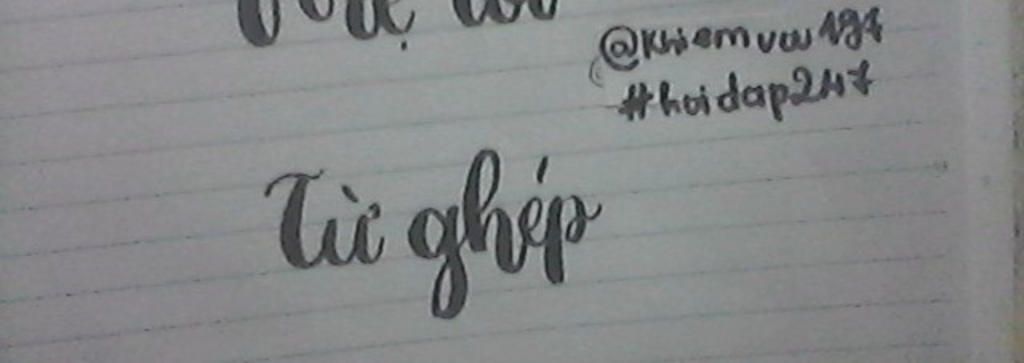 @khiemvux191
#hoidap247
Từ ghép